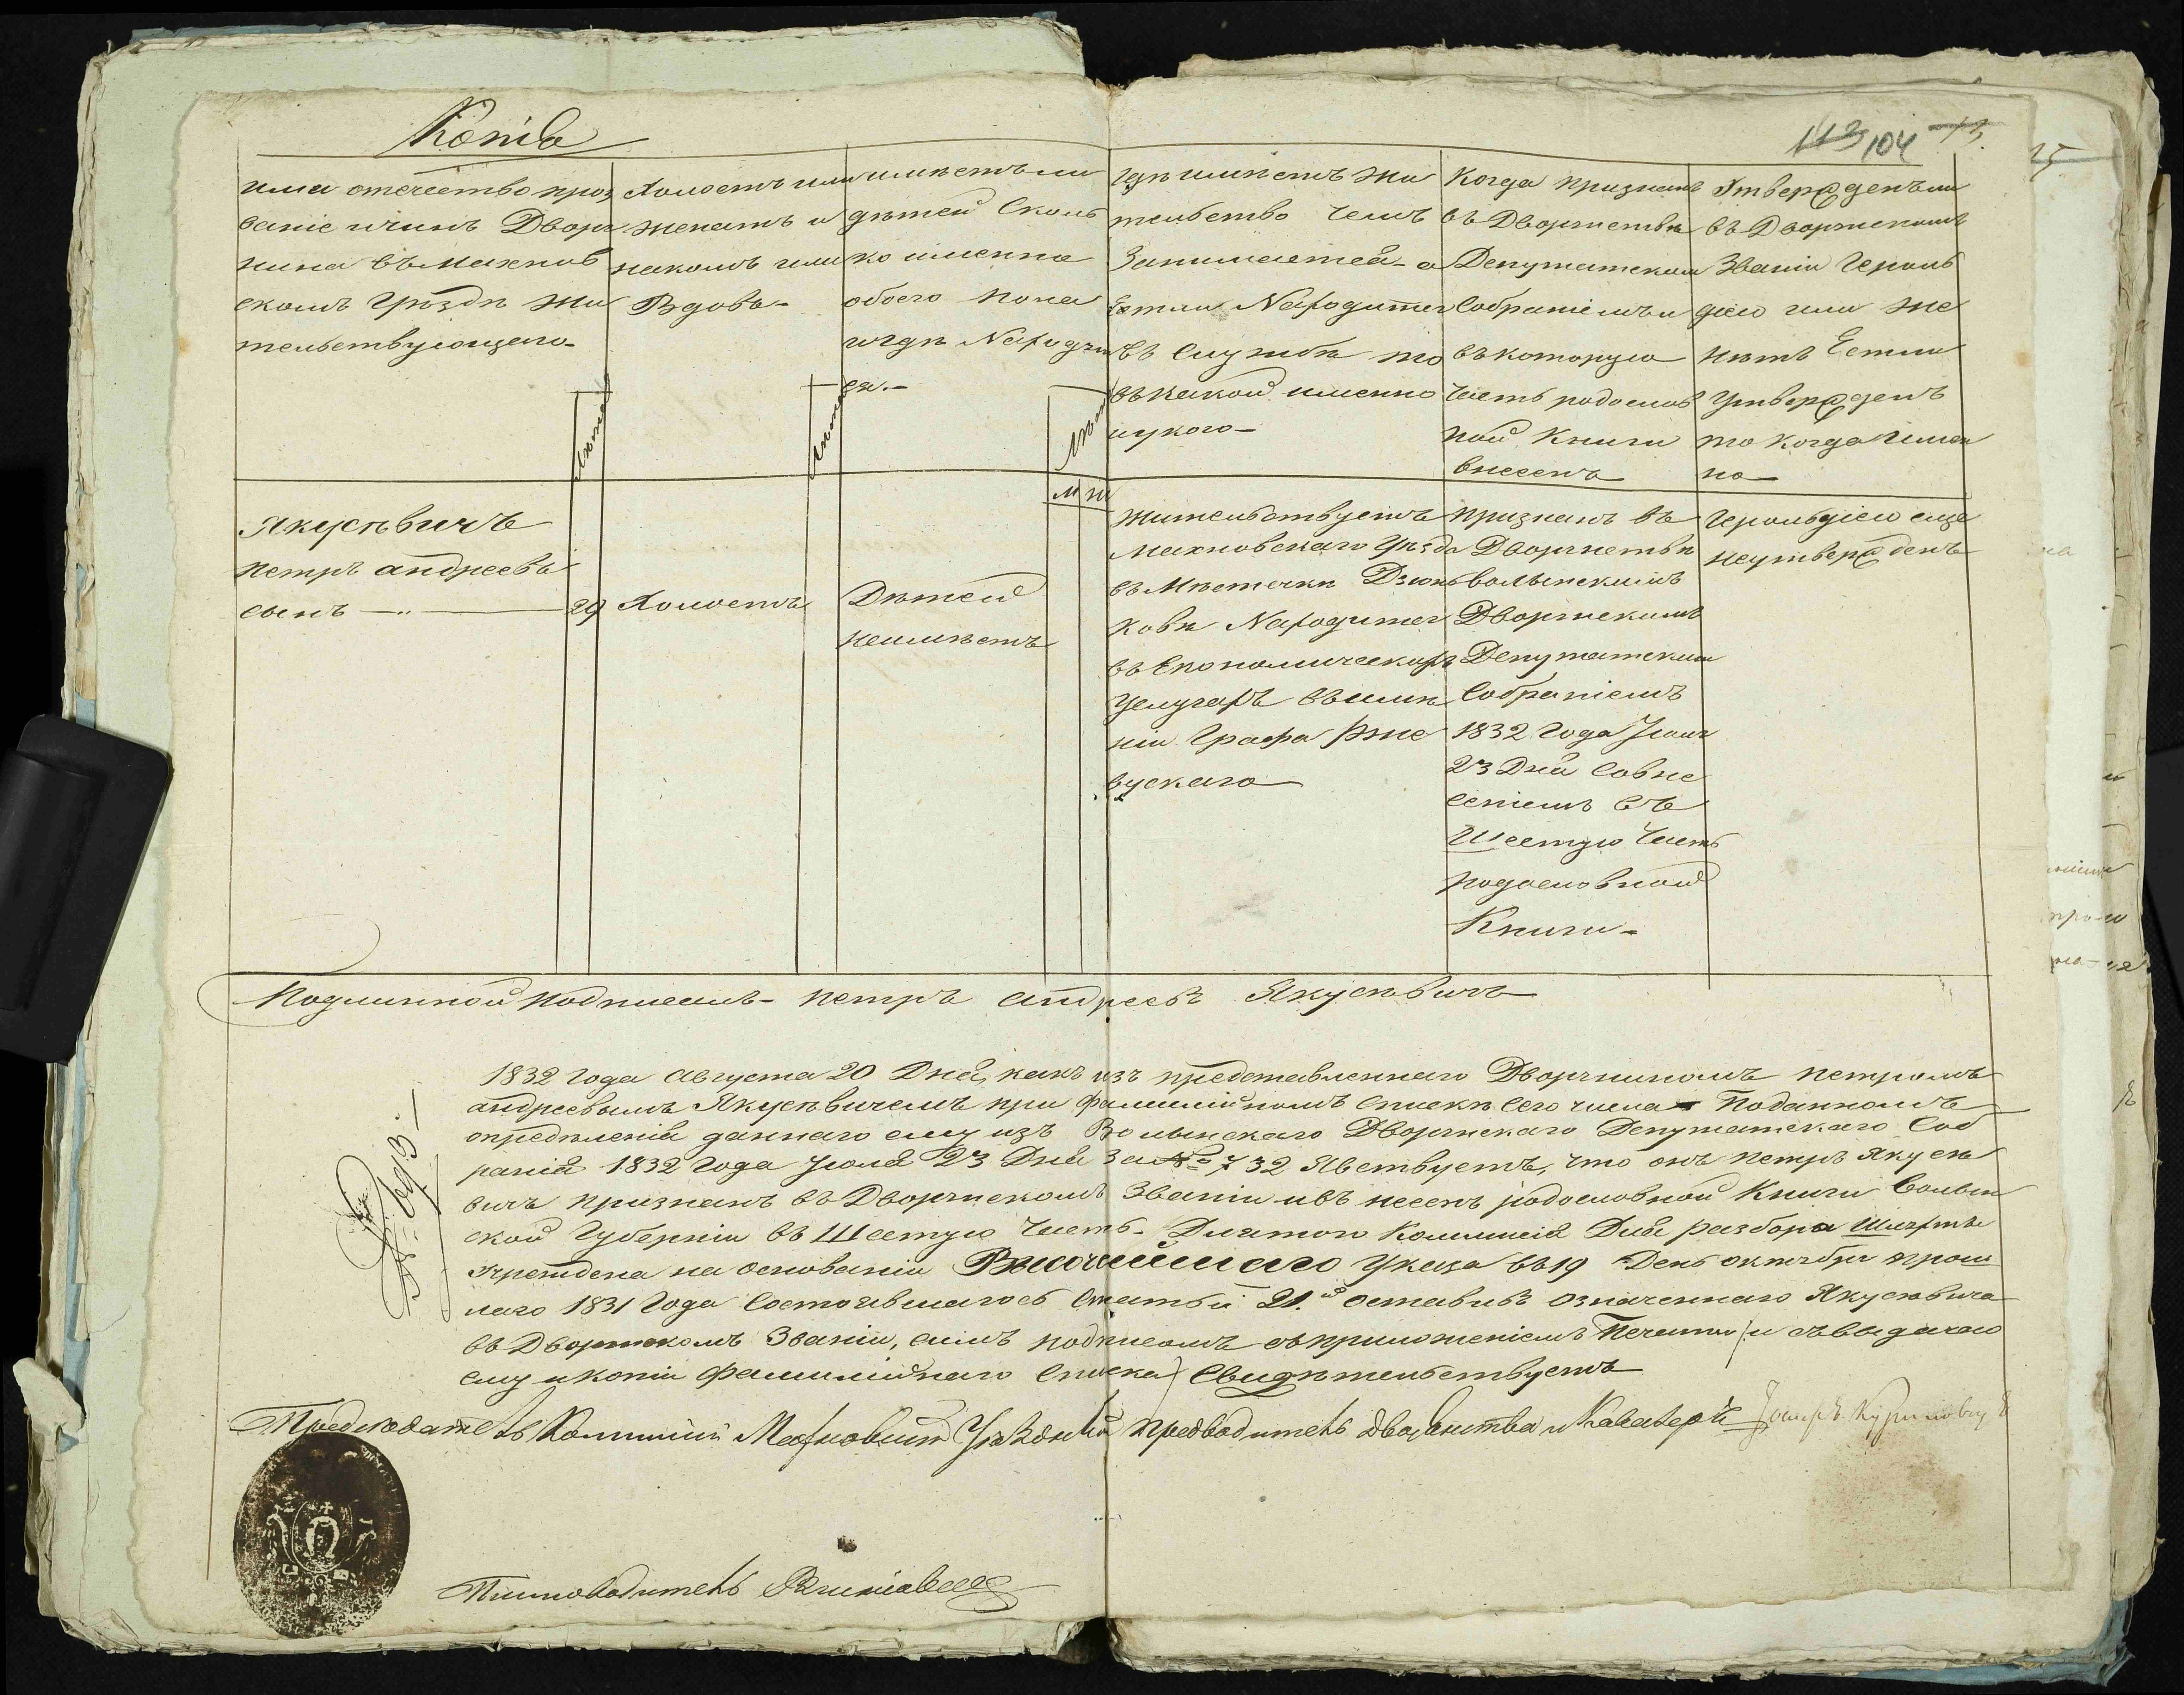 Копія
113 104 73
имя отечество проз
ваніе и чинъ Дворя
нина въ Махнов
скомъ Уѣздѣ жи
тельствующаго
лѣта
Холостъ или
женатъ и
на комъ или
Вдовъ
лѣта
имѣетъ ли
дѣтей Сколь
ко именно
обоего пола
и гдѣ Находят
ся
лѣта
м ж
гдѣ имѣетъ жи
тельство чемъ
Занимается а
Естли Находится
въ Службѣ то
въ какой именно
и у кого
Когда признанъ
въ Дворянствѣ
Депутатскимъ
Собраніемъ и
въ которую
Часть родослов
ной Книги
внесенъ
Утвержденъ ли
въ Дворянскомъ
Званіи Героль
діею или же
нѣтъ Естли
Утвержденъ
то когда имен
но
Якусѣвичъ
петръ андреевъ
сынъ
29
Холостъ
Дѣтей
неимѣетъ
жительствуетъ
Махновскаго Уѣзда
въ Мѣстечкѣ Дзюнь
ковѣ Находится
въ Економическихъ
Услугахъ въ имѣ
ніи Графа Рже
вускаго
признанъ въ
Дворянствѣ
волынскимъ
Дворянскимъ
Депутатским
Собраніемъ
1832 Года Іюля
23 Дня Совне
сеніемъ въ
Шестую Часть
родословной
Книги
Герольдіею еще
неутвержденъ
Подлинной подписалъ петръ андреевъ Якусѣвичъ
1832 года августа 20 Дня, какъ изъ представленнаго Дворяниномъ петромъ
андреевымъ Якусѣвичемъ при фамилійномъ Спискѣ Сего числа поданномъ
опредѣленія даннаго ему изъ Волынскаго Дворянскаго Депутатскаго Соб
ранія 1832 Года Іюля 23 Дня за № 732 Явствуетъ, что онъ петръ Якусѣ
вичъ признанъ въ Дворянскомъ Званіи и внесенъ родословной Книги Волын
ской Губерніи въ Шестую Часть. Для того Коммисія Для разбора Шляхты
Учреждена на основаніи Высочайшаго Указа въ 19 День октября прош
лаго 1831 Года Состоявшагося Статьи 21.й оставивъ означеннаго Якусѣвича
въ Дворянскомъ Званіи, симъ подписомъ съ приложеніемъ Печати и съ выдачею
ему и копіи Фамилійнаго Списка Свидѣтельствуетъ
Предсѣдатель Коммисіи Махновский Уѣздный предводитель дворянства и Кавалеръ
Писмоводитель